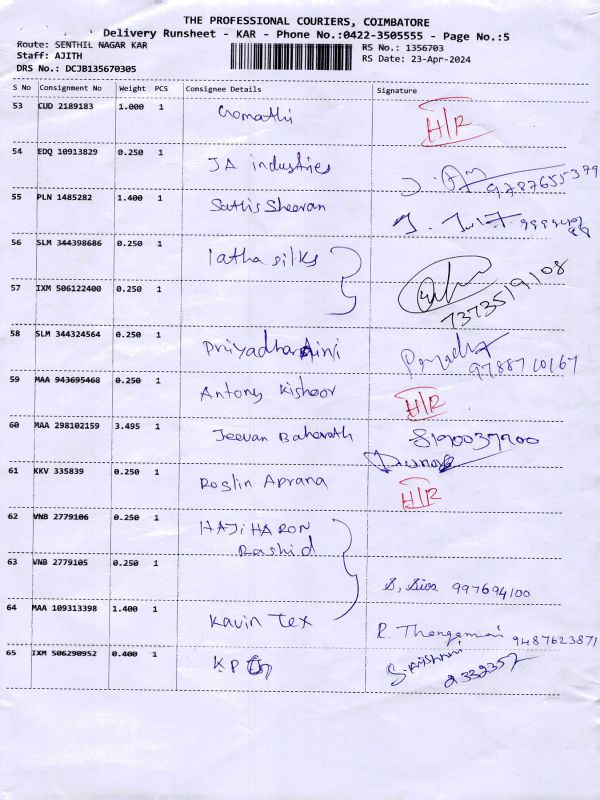 THE PROFESSIONAL COURIERS, COIMBATORE
Delivery Runsheet - KAR - Phone No.:0422-3505555 - Page No.:5
Route: SENTHIL NAGAR KAR RS No.: 1356703
Staff: AJITH RS Date: 23-Apr-2024
DRS No.: DCJB135670305
S No Consignment No Weight PCS Consignee Details Signature
53 CUD 2189183 1.000 1 Gomathi H/R
54 EDQ 10913829 0.250 1 JA industries 9787655379
55 PLN 1485282 1.400 1 SathisSheeran
56 SLM 344398686 0.250 1 latha silks
57 IXM 506122400 0.250 1 7373519108
58 SLM 344324564 0.250 1 Priyadharshini 9788710167
59 MAA 943695468 0.250 1 Antony Kishoor H/R
60 MAA 298102159 3.495 1 Jeevan Baharath 8190037200
61 KKV 335839 0.250 1 Roslin Aprana H/R
62 VNB 2779106 0.250 1 HAJI HARON
Rashid
63 VNB 2779105 0.250 1 S, Siva 997694100
64 MAA 109313398 1.400 1 Kavin Tex R. Thangamani 9487623871
65 IXM 506290952 0.400 1 KP 2332357